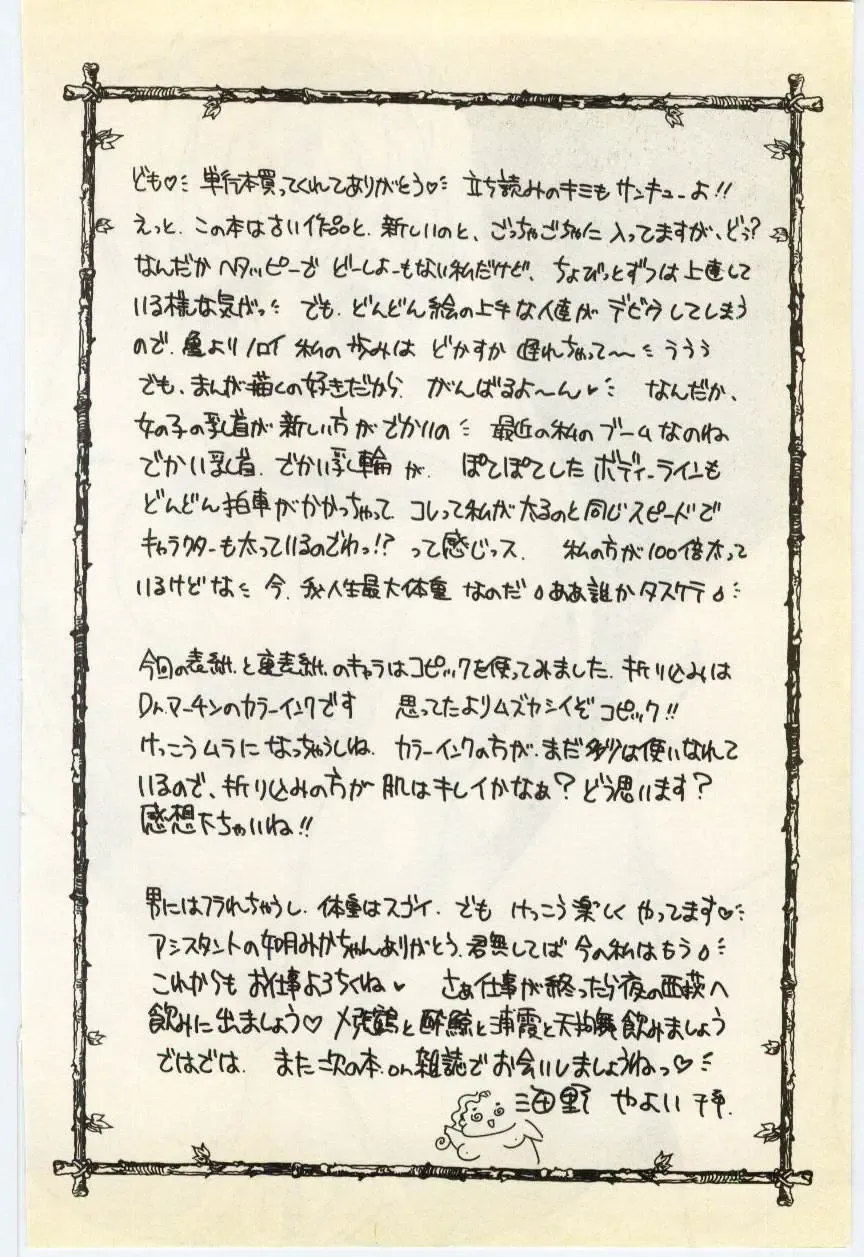 ども♡ 単行本買ってくれてありがとう♡ 立ち読みのキミも サンキューよ!!
えっと、この本は古い作品と、新しいのと、ごっちゃごちゃに入ってますが、どぉ?
なんだか ヘタッピーで どーしよーもない私だけど、ちょびっとずつは上達して
いる様な気がっ でも、どんどん絵の上手な人達が デビウしてしまう
ので、亀よりノロイ 私の歩みは どかすか 遅れちゃって〜 ううう
でも、まんが描くの好きだから、がんばるよ〜ん♥ なんだか、
女の子の乳首が新しい方がでかいの 最近の私の ブームなのね
でかい乳首、でかい乳輪が、ぽてぽてした ボディーラインも
どんどん拍車がかかっちゃって、コレって私が太るのと同じスピードで
キャラクターも太っているのでわっ!? って感じっス。 私の方が100倍太って
いるけどな 今、我人生最大体重 なのだ ああ誰かタスケテ
今回の表紙と裏表紙のキャラはコピックを使ってみました。折り込みは
Dr.マーチンのカラーインクです 思ってたよりムズカシイぞ コピック!!
けっこうムラになっちゃうしね、カラーインクの方が、まだ多少は使いなれて
いるので、折り込みの方が 肌はキレイかなぁ? どう思います?
感想下ちゃいね!!
男にはフラれちゃうし、体重はスゴイ、でも けっこう楽しく やってます♡
アシスタントの如月みかちゃんありがとう、君無しでは 今の私はもう
これからも お仕事よろちくね♥ さぁ仕事が終ったら今夜の西荻へ
飲みに出ましょう♡ 〆張鶴と酔鯨と浦霞と天狗舞飲みましょう
ではでは、また次の本、on雑誌でお会いしましょうねっ♡
海野 やよい 拝.